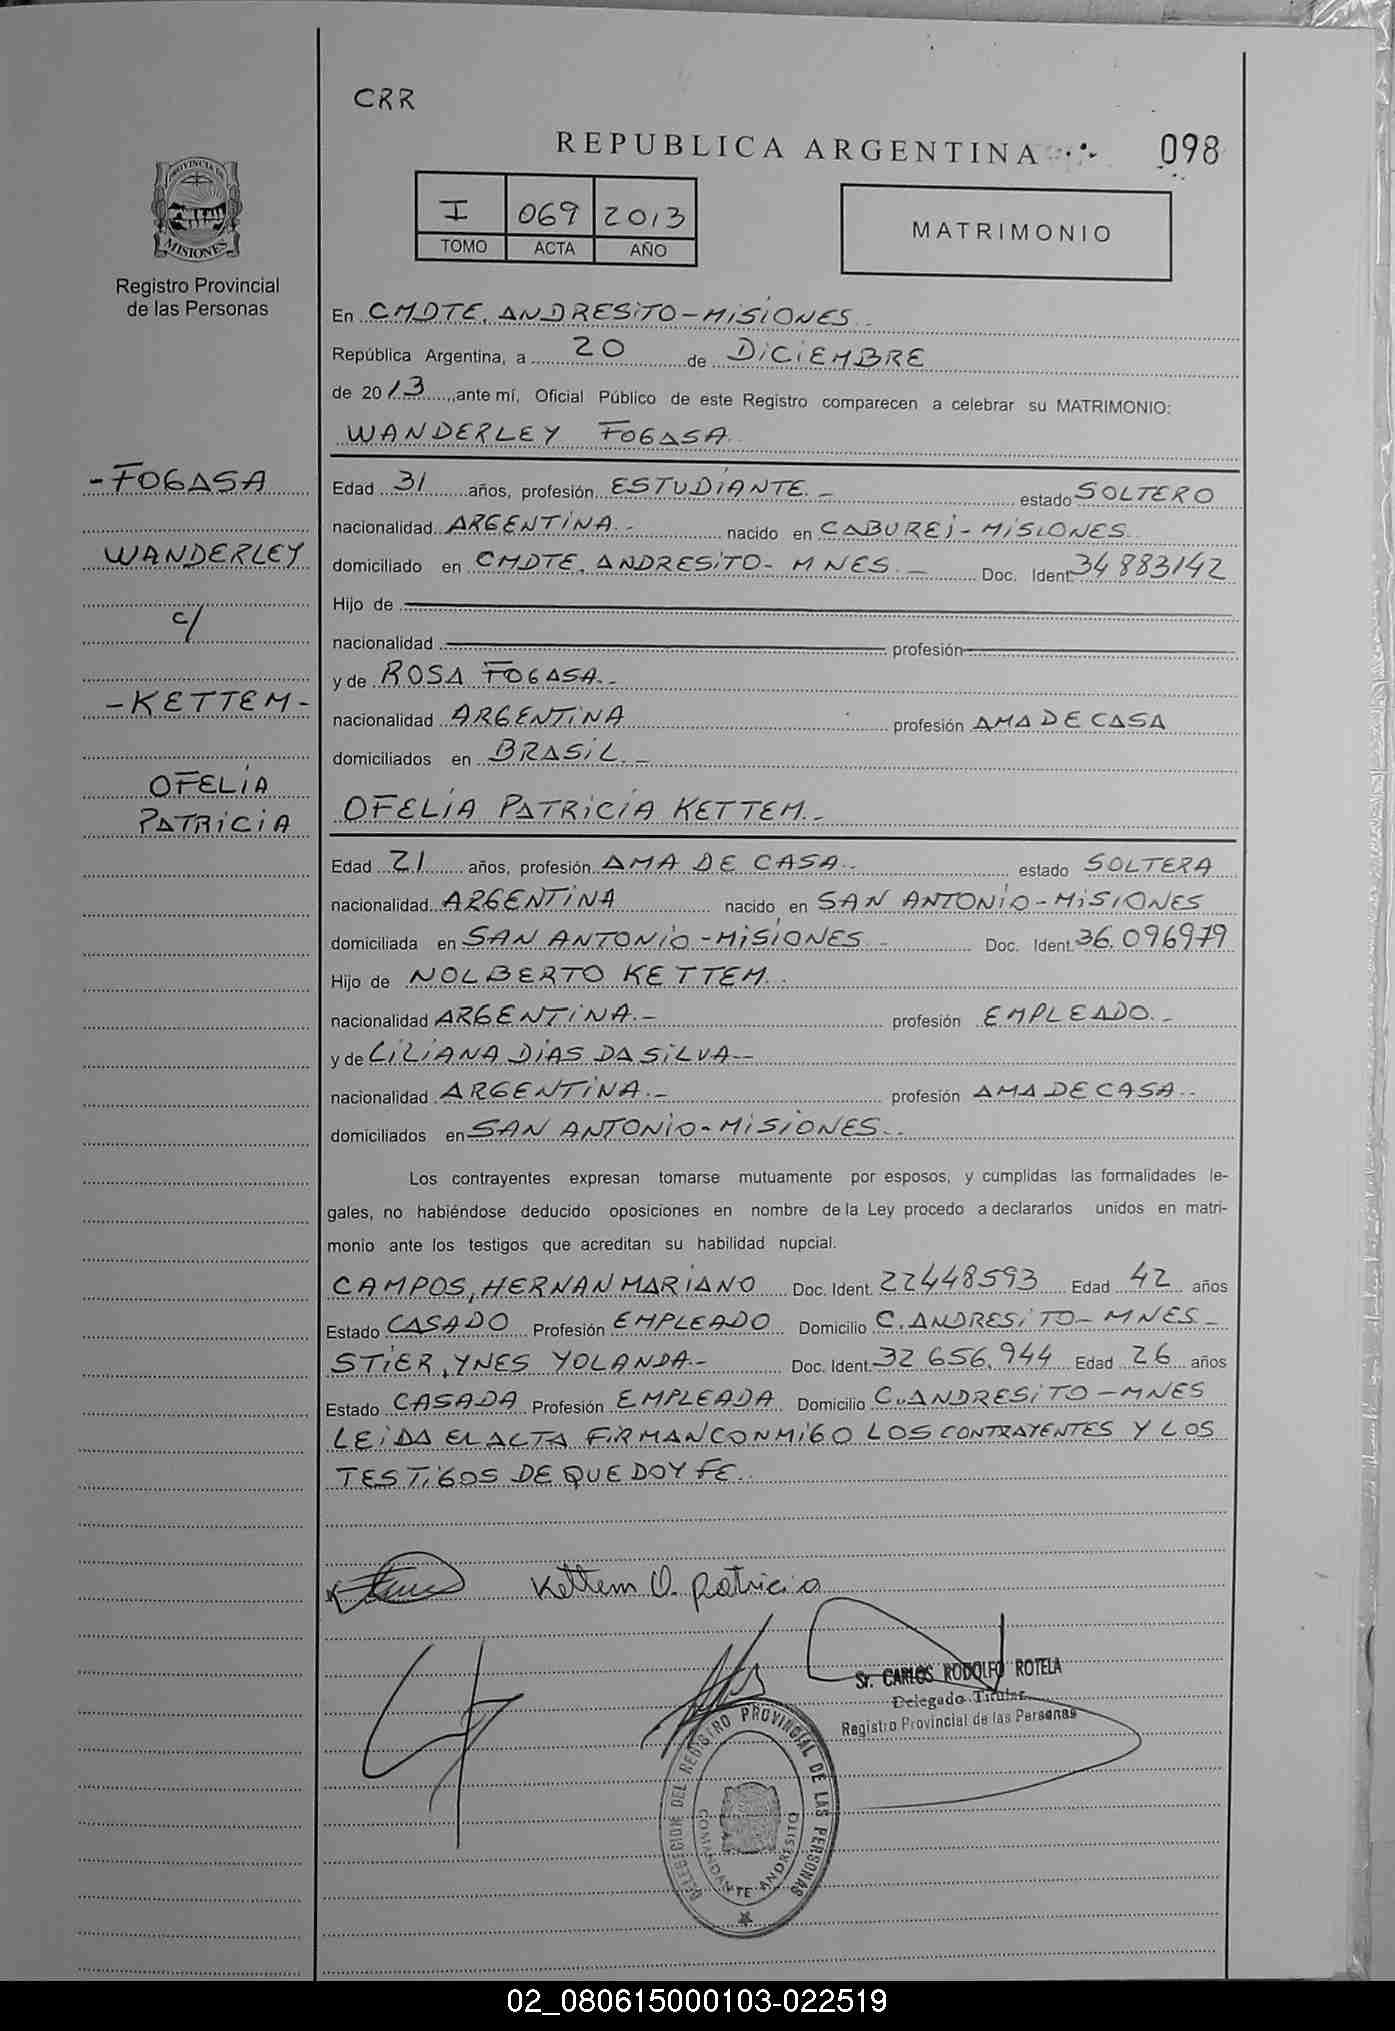 CRR
REPUBLICA ARGENTINA
098
PROVINCIA DE
MISIONES
Registro Provincial
de las Personas
I 069 2013
TOMO ACTA AÑO
MATRIMONIO
En CMDTE. ANDRESiTO - MiSiONES.
República Argentina, a 20 de DiCiEMBRE
de 2013, ante mí, Oficial Público de este Registro comparecen a celebrar su MATRIMONIO:
WANDERLEY FOGASA.
- FOGASA
WANDERLEY
c/
- KETTEM -
OFELiA
PATRiCiA
Edad 31 años, profesión ESTUDiANTE. - estado SOLTERO
nacionalidad ARGENTiNA. - nacido en CABUREi - MiSiONES.
domiciliado en CMDTE. ANDRESiTO - MNES. - Doc. Ident. 34 883142
Hijo de
nacionalidad profesión
y de ROSA FOGASA. -
nacionalidad ARGENTiNA profesión AMA DE CASA
domiciliados en BRASiL. -
OFELiA PATRiCiA KETTEM. -
Edad 21 años, profesión AMA DE CASA. - estado SOLTERA
nacionalidad ARGENTiNA nacido en SAN ANTONiO - MiSiONES
domiciliada en SAN ANTONiO - MiSiONES - Doc. Ident. 36.096979
Hijo de NOLBERTO KETTEM. -
nacionalidad ARGENTiNA. - profesión EMPLEADO. -
y de LiLiANA DiAS DA SiLVA. -
nacionalidad ARGENTiNA. - profesión AMA DE CASA. -
domiciliados en SAN ANTONiO - MiSiONES. -
Los contrayentes expresan tomarse mutuamente por esposos, y cumplidas las formalidades le-
gales, no habiéndose deducido oposiciones en nombre de la Ley procedo a declararlos unidos en matri-
monio ante los testigos que acreditan su habilidad nupcial.
CAMPOS, HERNAN MARiANO Doc. Ident. 22448593 Edad 42 años
Estado CASADO Profesión EMPLEADO Domicilio C. ANDRESiTO - MNES -
STiER, YNES YOLANDA - Doc. Ident. 32 656.944 Edad 26 años
Estado CASADA Profesión EMPLEADA Domicilio C. ANDRESiTO - MNES
LEiDA EL ACTA FiRMAN CONMiGO LOS CONTRAYENTES Y LOS
TESTiGOS DE QUE DOY FE.
Kettem O. Patricia
Sr. CARLOS RODOLFO ROTELA
Delegado Titular
Registro Provincial de las Personas
DELEGACION DEL REGISTRO PROVINCIAL DE LAS PERSONAS
COMANDANTE ANDRESITO
02_080615000103-022519